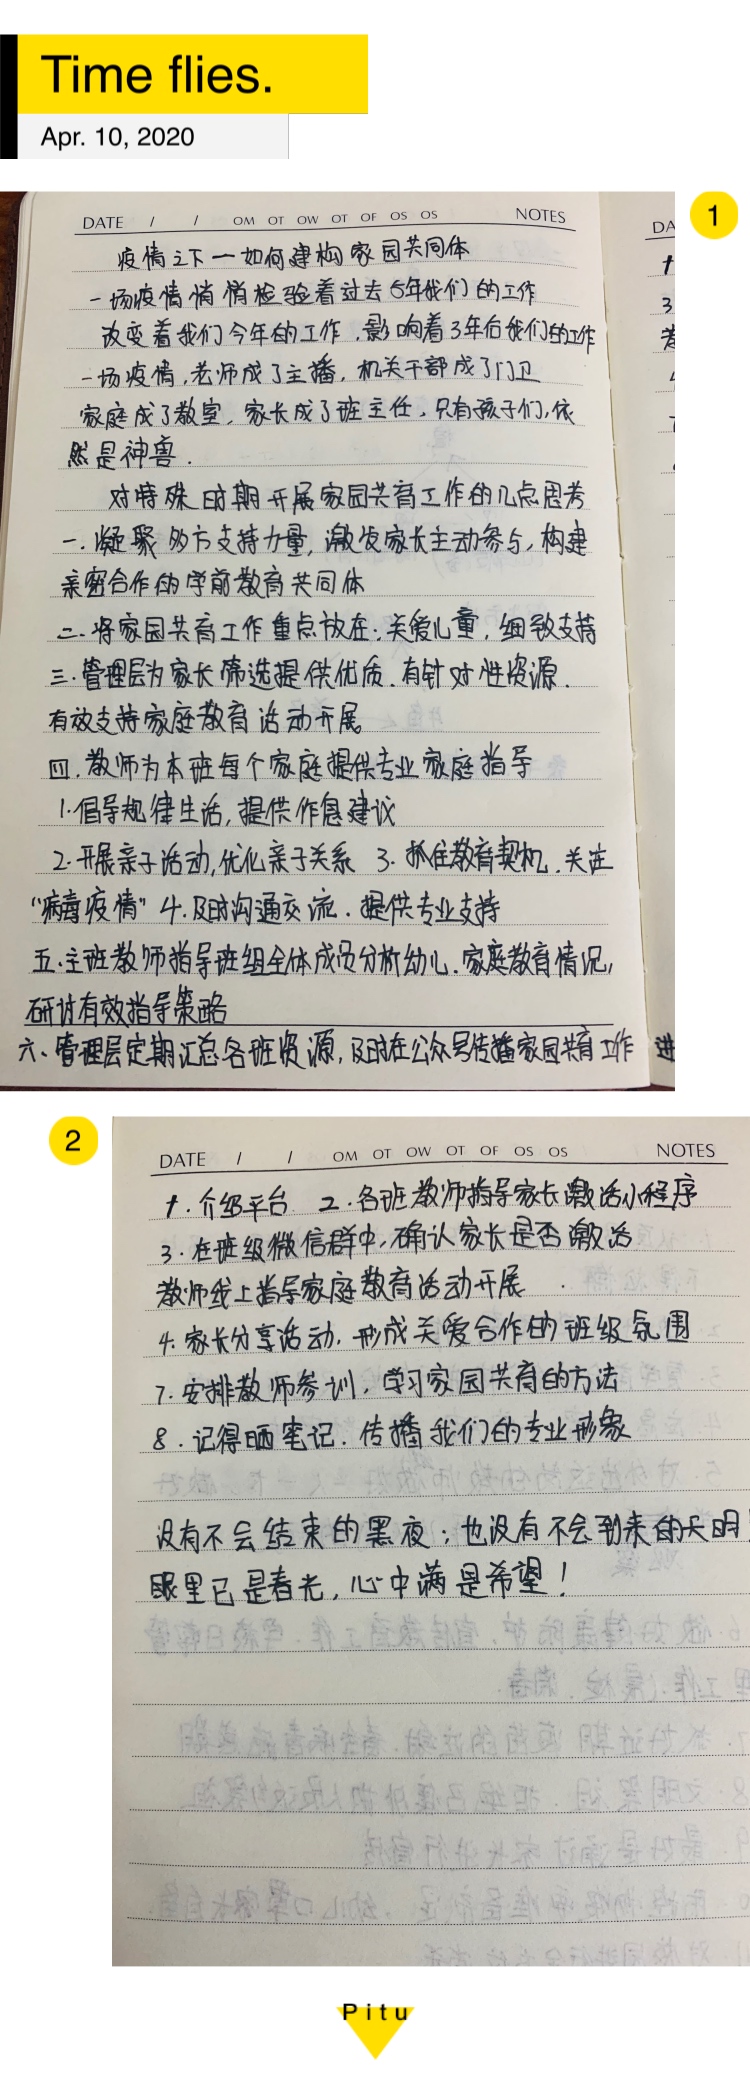 Time flies.
Apr. 10, 2020
1
DATE / / OM OT OW OT OF OS OS NOTES
疫情之下一如何建构家园共同体
一场疫情悄悄检验着过去5年我们的工作
改变着我们今年的工作,影响着3年后我们的工作
一场疫情,老师成了主播,机关干部成了门卫
家庭成了教室,家长成了班主任,只有孩子们,依
然是神兽.
对特殊时期开展家园共育工作的几点思考
一.凝聚多方支持力量,激发家长主动参与,构建
亲密合作的学前教育共同体
二.将家园共育工作重点放在:关爱儿童,细致支持
三.管理层为家长筛选提供优质.有针对性资源.
有效支持家庭教育活动开展
四.教师为本班每个家庭提供专业家庭指导
1.倡导规律生活,提供作息建议
2.开展亲子活动,优化亲子关系 3.抓住教育契机.关注
“病毒疫情” 4.及时沟通交流.提供专业支持
五.主班教师指导班组全体成员分析幼儿.家庭教育情况,
研讨有效指导策略
六、管理层定期汇总各班资源,及时在公众号传播家园共育工作 进
DA
3
2
DATE / / OM OT OW OT OF OS OS NOTES
1.介绍平台 2.各班教师指导家长激活小程序
3.在班级微信群中,确认家长是否激活
教师线上指导家庭教育活动开展
4.家长分享活动,形成关爱合作的班级氛围
7.安排教师参训,学习家园共育的方法
8.记得晒笔记.传播我们的专业形象
没有不会结束的黑夜;也没有不会到来的天明!
眼里已是春光,心中满是希望!
Pitu